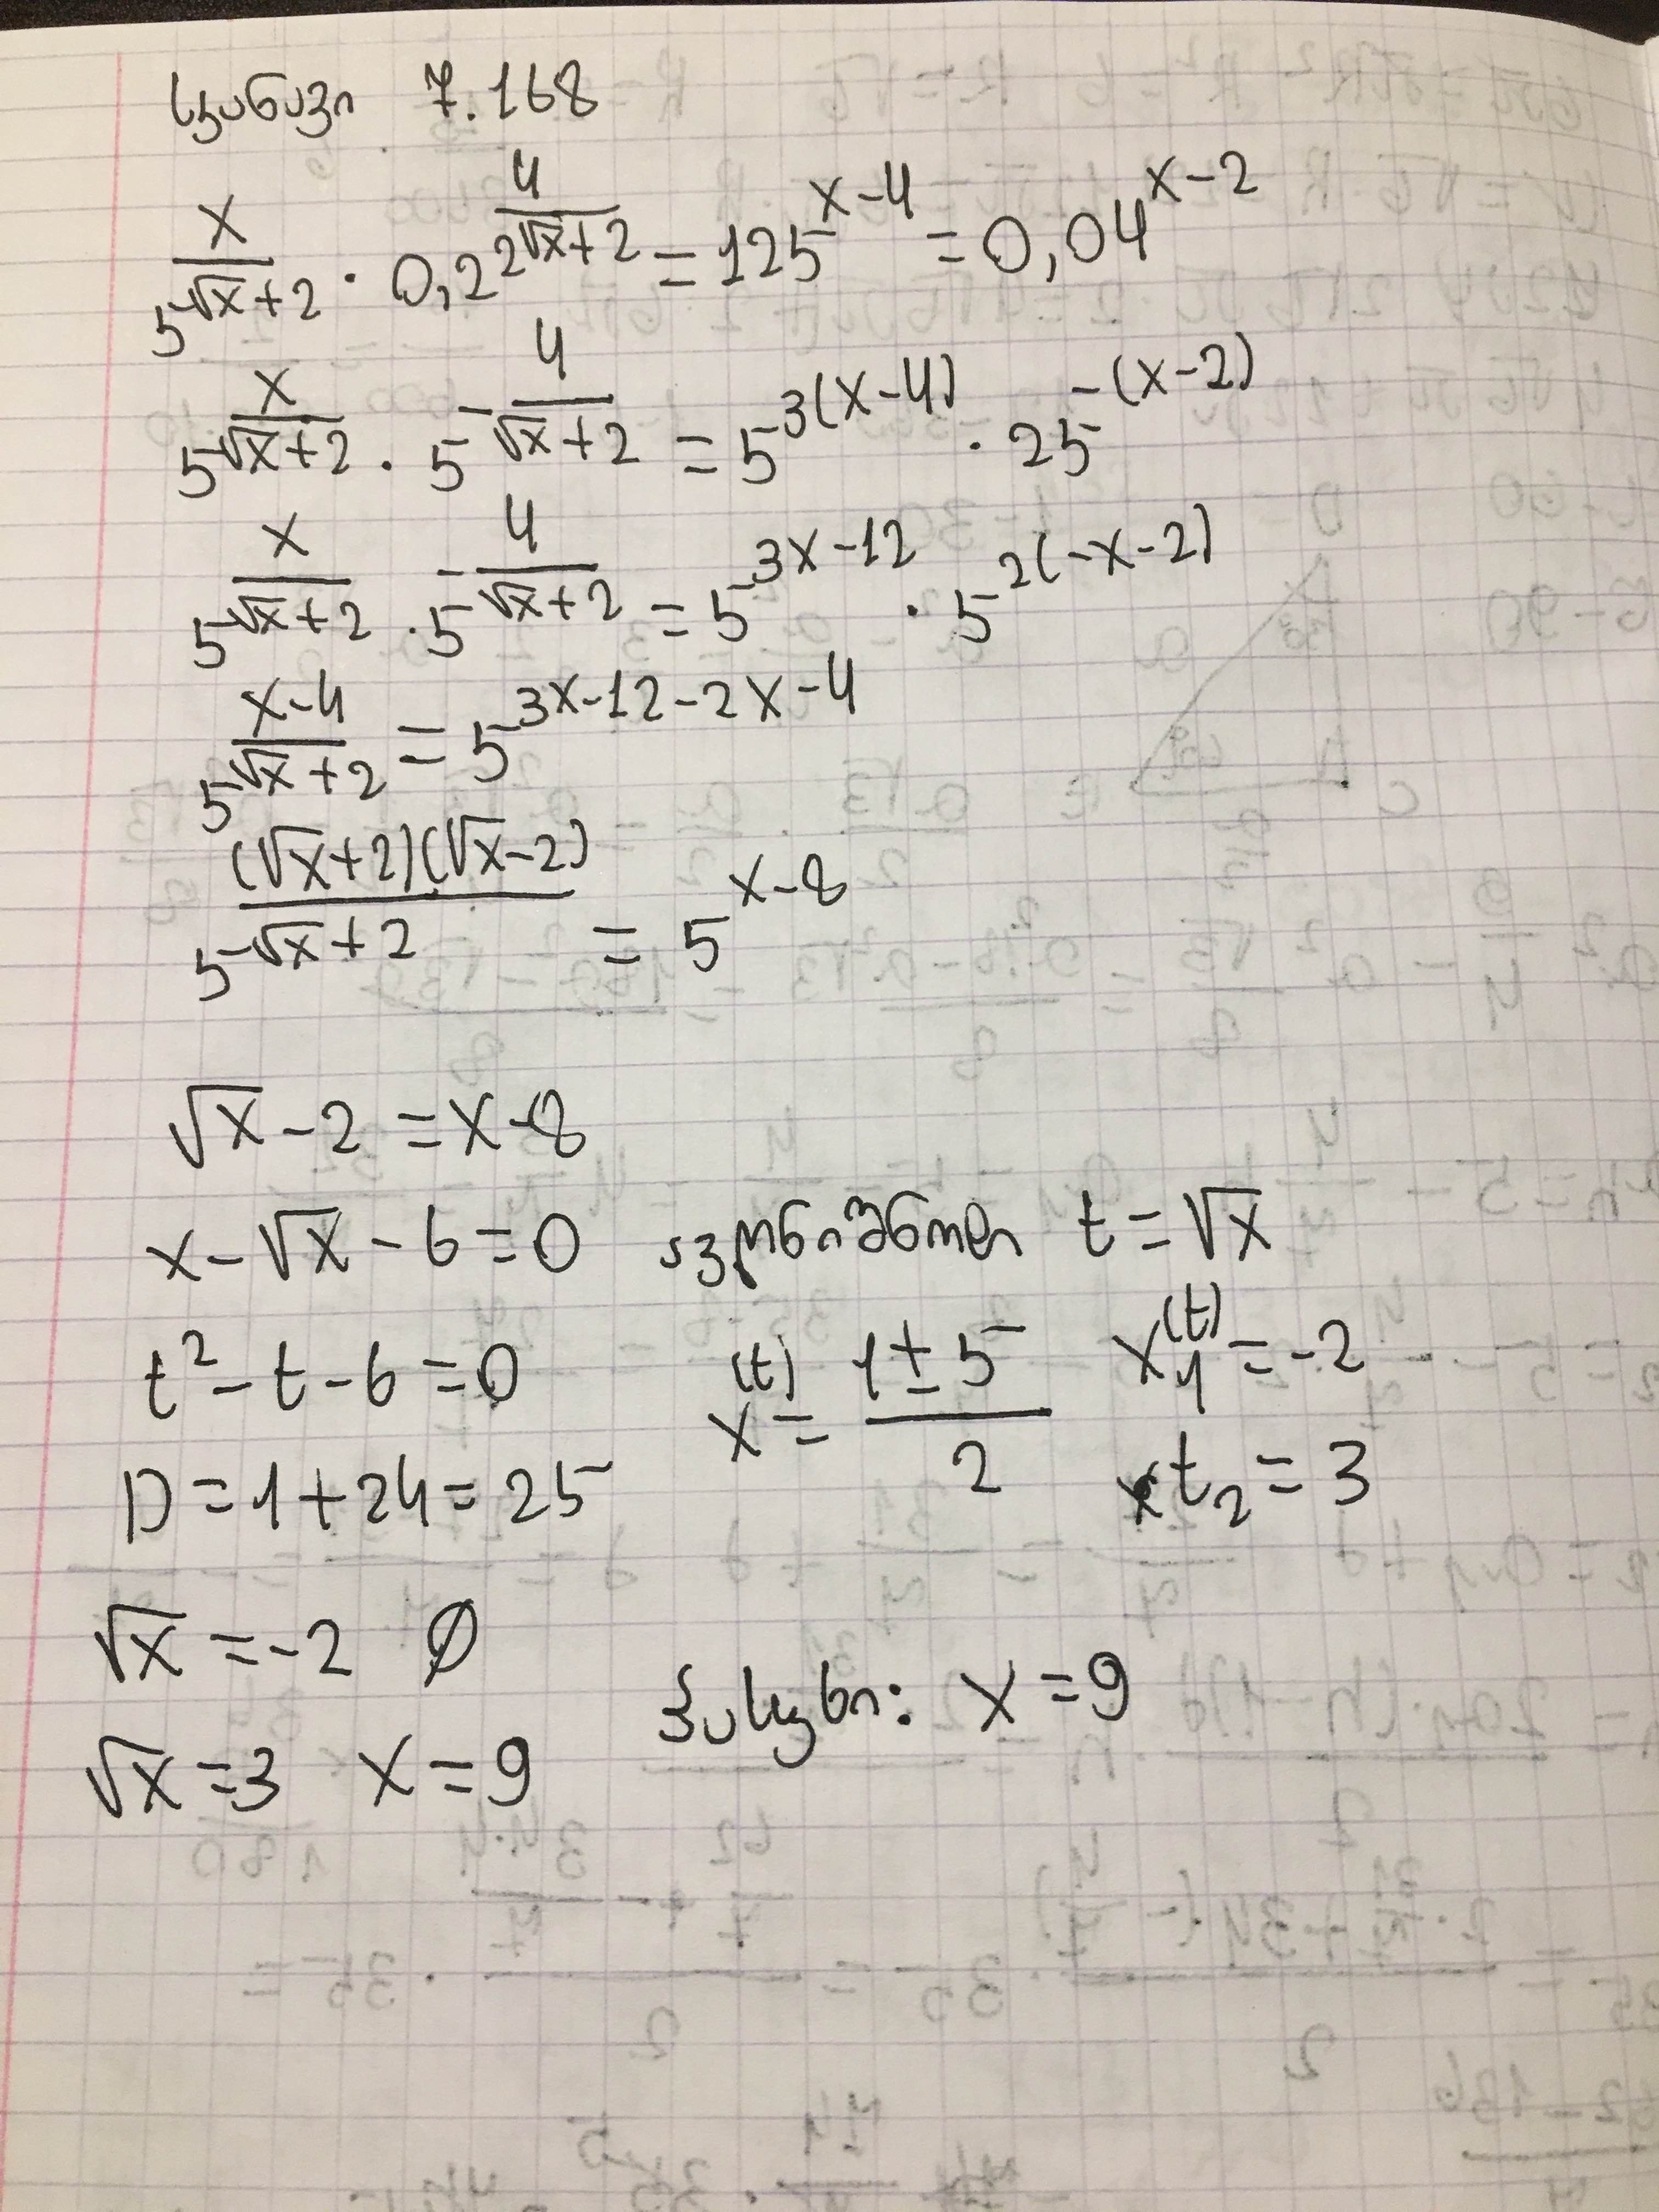 სკანავი 7.168
5^(x/(√x+2)) · 0,2^(4/(2√x+2)) = 125^(x-4) = 0,04^(x-2)
5^(x/(√x+2)) · 5^(-4/(√x+2)) = 5^(3(x-4)) · 25^(-(x-2))
5^(x/(√x+2)) · 5^(-4/(√x+2)) = 5^(3x-12) · 5^(2(-x-2))
5^((x-4)/(√x+2)) = 5^(3x-12-2x-4)
5^((√x+2)(√x-2)/(√x+2)) = 5^(x-8)
√x - 2 = x - 8
x - √x - 6 = 0 ავღნიშნოთ t = √x
t² - t - 6 = 0 x^(t) = (1±5)/2 x₁^(t) = -2
D = 1 + 24 = 25 t₂ = 3
√x = -2 ∅
პასუხი: x = 9
√x = 3 x = 9